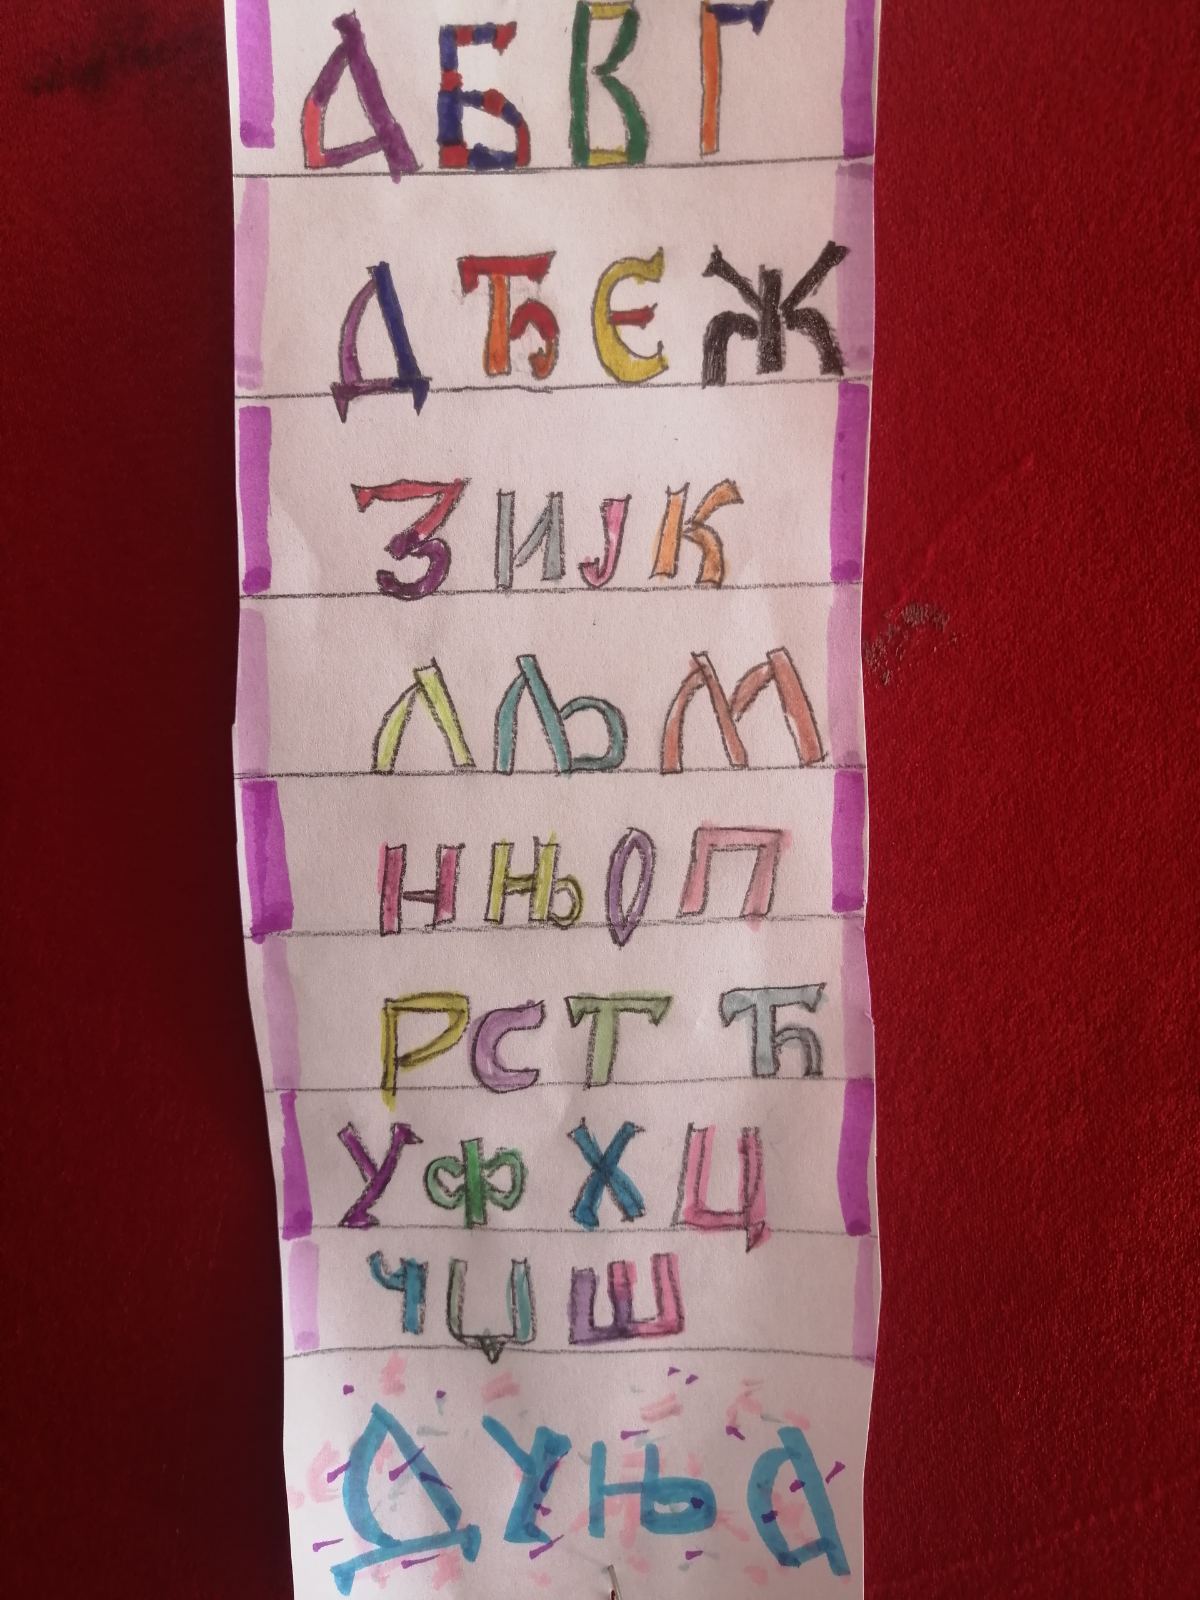 А Б В Г
Д Ђ Е Ж
З И Ј К
Л Љ М
Н Њ О П
Р С Т Ћ
У Ф Х Ц
Ч Џ Ш
ДУЊА